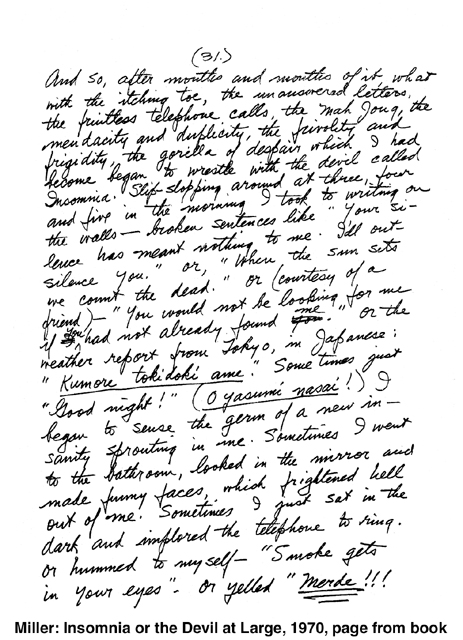 (31.)
And so, after months and months of it, what
with the itching toe, the unanswered letters,
the fruitless telephone calls, the mah jong, the
mendacity and duplicity, the frivolity and
frigidity, the gorilla of despair which I had
become began to wrestle with the devil called
Insomnia. Slip-slopping around at three, four
and five in the morning I took to writing on
the walls — broken sentences like "Your si-
lence has meant nothing to me. I'll out-
silence you." or, "Where the sun sets
we count the dead." or (courtesy of a
friend) — "You would not be looking for me
if you had not already found me." or the
weather report from Tokyo, in Japanese:
"Kumore tokidoki ame." Sometimes just
"Good night!" (O yasumi nasai!) I
began to sense the germ of a new in-
sanity sprouting in me. Sometimes I went
to the bathroom, looked in the mirror and
made funny faces, which frightened hell
out of me. Sometimes I just sat in the
dark and implored the telephone to ring.
or hummed to myself — "Smoke gets
in your eyes". or yelled "Merde!!!
Miller: Insomnia or the Devil at Large, 1970, page from book